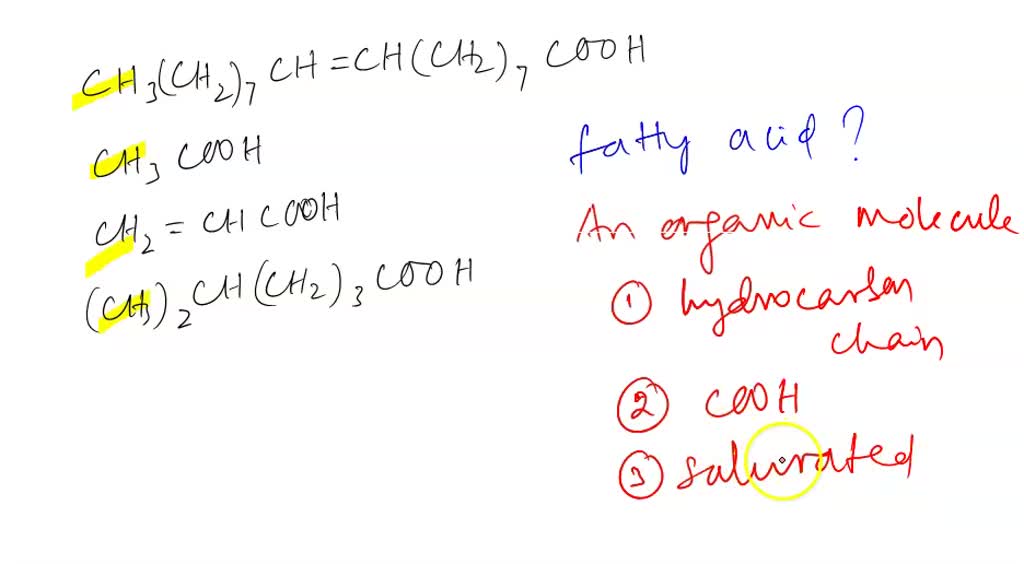 CH3(CH2)7 CH=CH(CH2)7 COOH
CH3 COOH
CH2 = CH COOH
(CH3)2 CH(CH2)3 COOH
fatty acid?
An organic molecule
① hydrocarbon
chain
② COOH
③ saturated